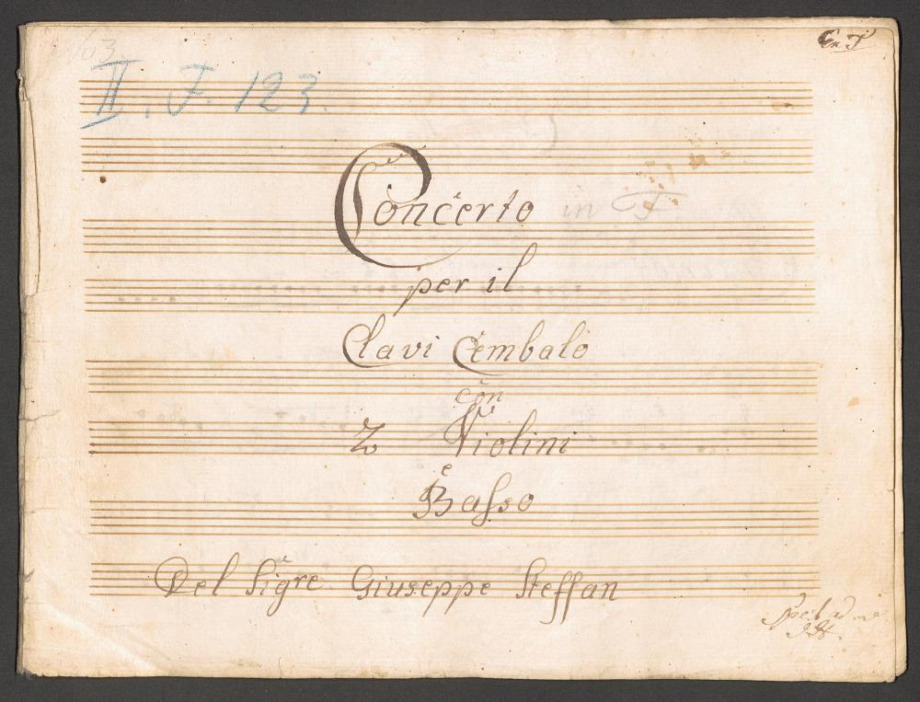 Ex. F
II. F. 123.
Concerto in F
per il
Clavi Cembalo
con
2 Violini
e
Basso
Del Sigre Giuseppe Steffan